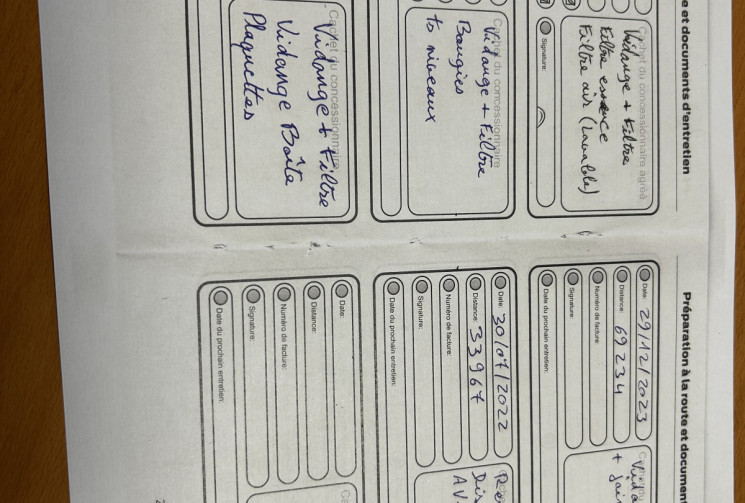 e et documents d'entretien
Cachet du concessionnaire agréé
Vidange + Filtre
Filtre essence
Filtre air (Lavable)
Signature:
Cachet du concessionnaire
Vidange + Filtre
Bougies
ts niveaux
Cachet du concessionnaire
Vidange + Filtre
Vidange Boîte
Plaquettes
Préparation à la route et documen
Date: 29/12/2023
Distance: 69234
Numéro de facture:
Signature:
Date du prochain entretien:
Vida
Date: 30/07/2022
Distance: 33967
Numéro de facture:
Signature:
Date du prochain entretien:
Date:
Distance:
Numéro de facture:
Signature:
Date du prochain entretien: